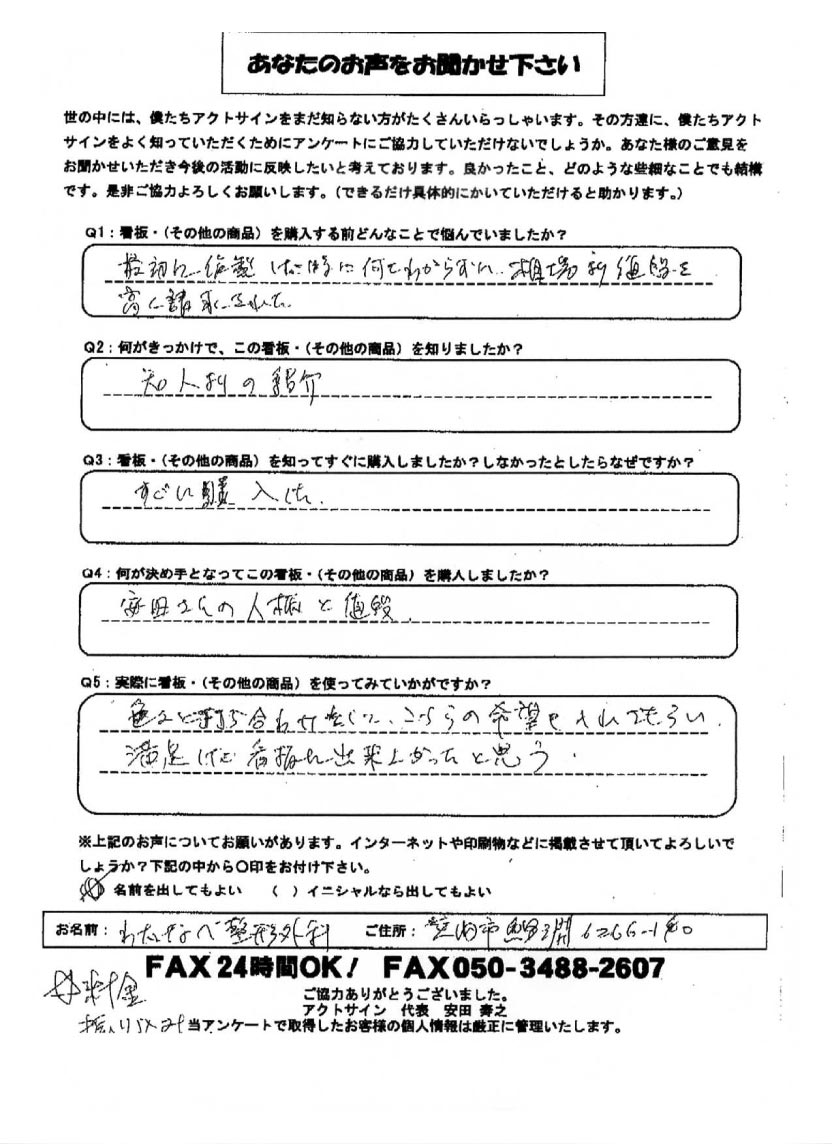 あなたのお声をお聞かせ下さい
世の中には、僕たちアクトサインをまだ知らない方がたくさんいらっしゃいます。その方達に、僕たちアクト
サインをよく知っていただくためにアンケートにご協力していただけないでしょうか。あなた様のご意見を
お聞かせいただき今後の活動に反映したいと考えております。良かったこと、どのような些細なことでも結構
です。是非ご協力よろしくお願いします。(できるだけ具体的にかいていただけると助かります。)
Q1:看板・(その他の商品)を購入する前どんなことで悩んでいましたか?
最初に 何もわからずに、相場より値段を
高く請求された
Q2:何がきっかけで、この看板・(その他の商品)を知りましたか?
知人よりの紹介
Q3:看板・(その他の商品)を知ってすぐに購入しましたか?しなかったとしたらなぜですか?
すぐに購入した.
Q4:何が決め手となってこの看板・(その他の商品)を購入しましたか?
安田さんの人柄と値段.
Q5:実際に看板・(その他の商品)を使ってみていかがですか?
色々と打ち合わせをして、こちらの希望を入れてもらい、
満足した看板に出来上がったと思う.
※上記のお声についてお願いがあります。インターネットや印刷物などに掲載させて頂いてよろしいで
しょうか?下記の中から〇印をお付け下さい。
(〇)名前を出してもよい ( )イニシャルなら出してもよい
お名前:わたなべ整形外科 ご住所:
FAX24時間OK! FAX050-3488-2607
ご協力ありがとうございました。
アクトサイン 代表 安田 寿之
当アンケートで取得したお客様の個人情報は厳正に管理いたします。